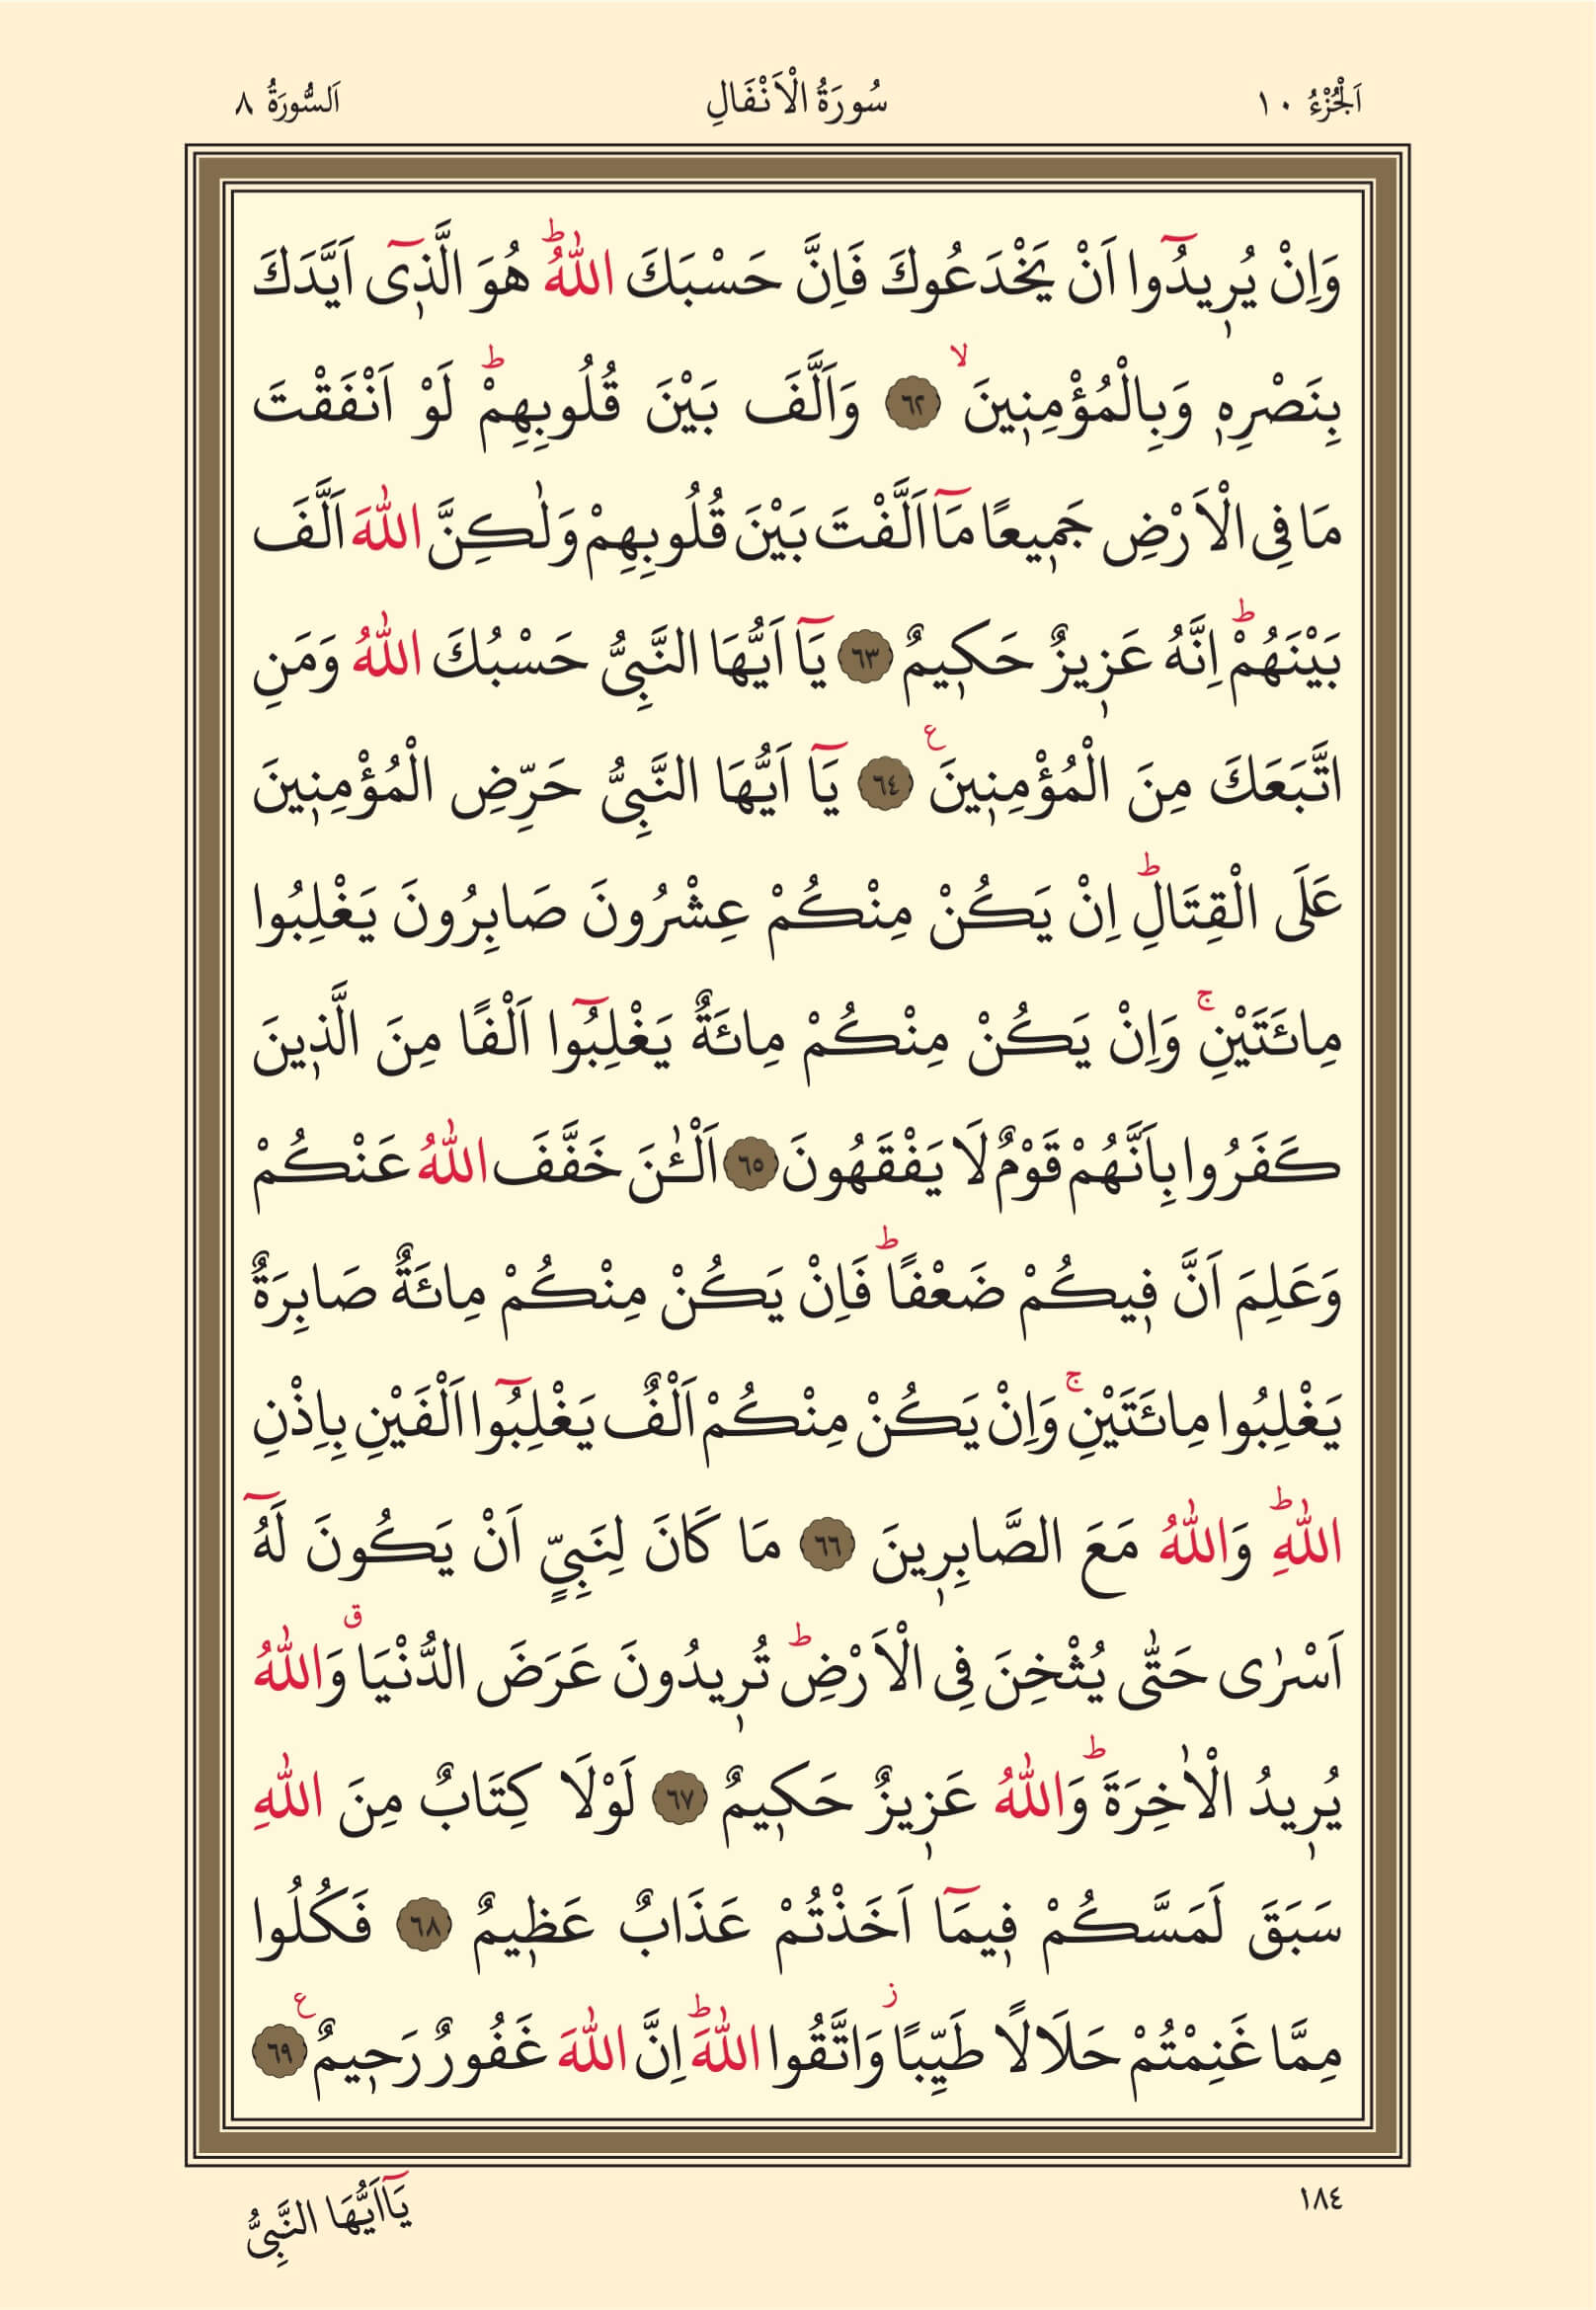 اَلْجُزْءُ ١٠ سُورَةُ الْاَنْفَالِ اَلسُّورَةُ ٨
وَاِنْ يُرٖيدُٓوا اَنْ يَخْدَعُوكَ فَاِنَّ حَسْبَكَ اللّٰهُؕ هُوَ الَّذٖٓى اَيَّدَكَ
بِنَصْرِهٖ وَبِالْمُؤْمِنٖينَۙ ﴿٦٢﴾ وَاَلَّفَ بَيْنَ قُلُوبِهِمْؕ لَوْ اَنْفَقْتَ
مَا فِى الْاَرْضِ جَمٖيعًا مَٓا اَلَّفْتَ بَيْنَ قُلُوبِهِمْ وَلٰكِنَّ اللّٰهَ اَلَّفَ
بَيْنَهُمْؕ اِنَّهُ عَزٖيزٌ حَكٖيمٌ ﴿٦٣﴾ يَٓا اَيُّهَا النَّبِىُّ حَسْبُكَ اللّٰهُ وَمَنِ
اتَّبَعَكَ مِنَ الْمُؤْمِنٖينَ ع ﴿٦٤﴾ يَٓا اَيُّهَا النَّبِىُّ حَرِّضِ الْمُؤْمِنٖينَ
عَلَى الْقِتَالِؕ اِنْ يَكُنْ مِنْكُمْ عِشْرُونَ صَابِرُونَ يَغْلِبُوا
مِائَتَيْنِۚ وَاِنْ يَكُنْ مِنْكُمْ مِائَةٌ يَغْلِبُٓوا اَلْفًا مِنَ الَّذٖينَ
كَفَرُوا بِاَنَّهُمْ قَوْمٌ لَا يَفْقَهُونَ ﴿٦٥﴾ اَلْـٰٔنَ خَفَّفَ اللّٰهُ عَنْكُمْ
وَعَلِمَ اَنَّ فٖيكُمْ ضَعْفًاؕ فَاِنْ يَكُنْ مِنْكُمْ مِائَةٌ صَابِرَةٌ
يَغْلِبُوا مِائَتَيْنِۚ وَاِنْ يَكُنْ مِنْكُمْ اَلْفٌ يَغْلِبُٓوا اَلْفَيْنِ بِاِذْنِ
اللّٰهِؕ وَاللّٰهُ مَعَ الصَّابِرٖينَ ﴿٦٦﴾ مَا كَانَ لِنَبِىٍّ اَنْ يَكُونَ لَهُٓ
اَسْرٰى حَتّٰى يُثْخِنَ فِى الْاَرْضِؕ تُرٖيدُونَ عَرَضَ الدُّنْيَا ق وَاللّٰهُ
يُرٖيدُ الْاٰخِرَةَؕ وَاللّٰهُ عَزٖيزٌ حَكٖيمٌ ﴿٦٧﴾ لَوْلَا كِتَابٌ مِنَ اللّٰهِ
سَبَقَ لَمَسَّكُمْ فٖيمَٓا اَخَذْتُمْ عَذَابٌ عَظٖيمٌ ﴿٦٨﴾ فَكُلُوا
مِمَّا غَنِمْتُمْ حَلَالًا طَيِّبًا ز وَاتَّقُوا اللّٰهَؕ اِنَّ اللّٰهَ غَفُورٌ رَحٖيمٌ ع ﴿٦٩﴾
١٨٤ يَٓااَيُّهَا النَّبِىُّ